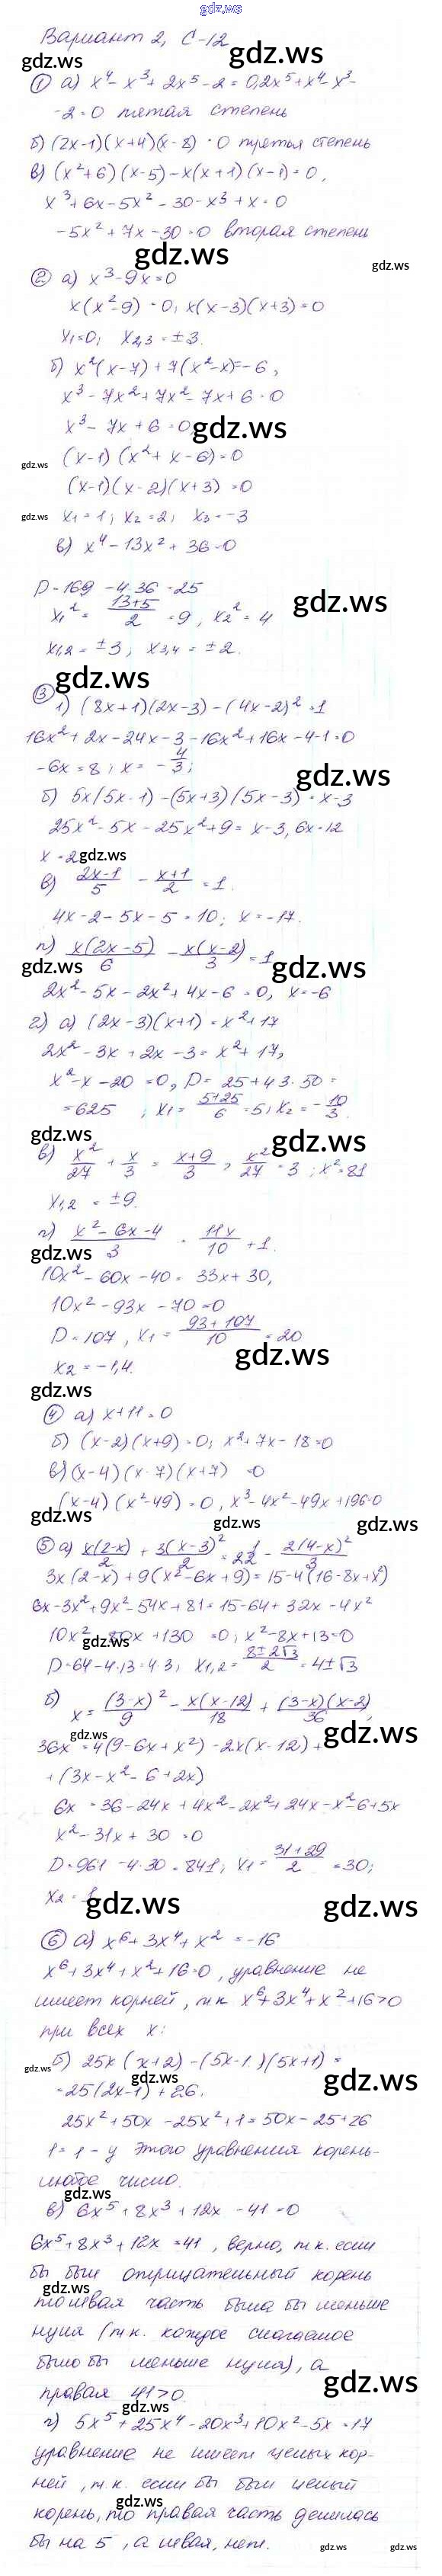 gdz.ws
Вариант 2, С-12
gdz.ws gdz.ws
① а) x⁴ - x³ + 2x⁵ - 2 = 0, 2x⁵ + x⁴ - x³ -
-2 = 0 пятая степень
б) (2x-1)(x+4)(x-8) = 0 третья степень
в) (x²+6)(x-5) - x(x+1)(x-1) = 0,
x³ + 6x - 5x² - 30 - x³ + x = 0
-5x² + 7x - 30 = 0 вторая степень
gdz.ws gdz.ws
② а) x³ - 9x = 0
x(x²-9) = 0; x(x-3)(x+3) = 0
x₁ = 0; x₂,₃ = ±3.
б) x²(x-7) + 7(x²-x) = -6,
x³ - 7x² + 7x² - 7x + 6 = 0
x³ - 7x + 6 = 0, gdz.ws
gdz.ws (x-1)(x² + x - 6) = 0
(x-1)(x-2)(x+3) = 0
gdz.ws x₁ = 1; x₂ = 2; x₃ = -3
в) x⁴ - 13x² + 36 = 0
D = 169 - 4·36 = 25
x₁² = (13+5)/2 = 9, x₂² = 4 gdz.ws
x₁,₂ = ±3; x₃,₄ = ±2.
③ gdz.ws
1) (8x+1)(2x-3) - (4x-2)² = 1
16x² + 2x - 24x - 3 - 16x² + 16x - 4 - 1 = 0
-6x = 8; x = -4/3;
gdz.ws
б) 5x(5x-1) - (5x+3)(5x-3) = x-3
25x² - 5x - 25x² + 9 = x - 3, 6x = 12
x = 2 gdz.ws
в) (2x-1)/5 - (x+1)/2 = 1.
4x - 2 - 5x - 5 = 10; x = -17.
г) x(2x-5)/6 - x(x-2)/3 = 1
gdz.ws gdz.ws
2x² - 5x - 2x² + 4x - 6 = 0, x = -6
2) а) (2x-3)(x+1) = x² + 17
2x² - 3x + 2x - 3 = x² + 17,
x² - x - 20 = 0, D = 25 + 4·3·50 =
= 625; x₁ = (5+25)/6 = 5; x₂ = -10/3.
gdz.ws gdz.ws
в) x²/27 + x/3 = (x+9)/3, x²/27 = 3; x² = 81
x₁,₂ = ±9.
г) (x² - 6x - 4)/3 = 11x/10 + 1.
gdz.ws
10x² - 60x - 40 = 33x + 30,
10x² - 93x - 70 = 0
D = 107, x₁ = (93+107)/10 = 20
x₂ = -1,4. gdz.ws
gdz.ws
④ а) x + 11 = 0
б) (x-2)(x+9) = 0; x² + 7x - 18 = 0
в) (x-4)(x-7)(x+7) = 0
(x-4)(x²-49) = 0, x³ - 4x² - 49x + 196 = 0
gdz.ws gdz.ws gdz.ws
⑤ а) x(2-x)/2 + 3(x-3)²/2 = 2 1/2 - 2(4-x)²/3
3x(2-x) + 9(x² - 6x + 9) = 15 - 4(16 - 8x + x²)
6x - 3x² + 9x² - 54x + 81 = 15 - 64 + 32x - 4x²
10x² - 80x + 130 = 0; x² - 8x + 13 = 0
gdz.ws
D = 64 - 4·13 = 4·3; x₁,₂ = (8±2√3)/2 = 4±√3
б) x = (3-x)²/9 - x(x-12)/18 + (3-x)(x-2)/36,
gdz.ws gdz.ws
36x = 4(9 - 6x + x²) - 2x(x-12) +
+ (3x - x² - 6 + 2x)
6x = 36 - 24x + 4x² - 2x² + 24x - x² - 6 + 5x
x² - 31x + 30 = 0
D = 961 - 4·30 = 841; x₁ = (31+29)/2 = 30;
x₂ = 1 gdz.ws gdz.ws
⑥ а) x⁶ + 3x⁴ + x² = -16
x⁶ + 3x⁴ + x² + 16 = 0, уравнение не
имеет корней, т.к. x⁶ + 3x⁴ + x² + 16 > 0
при всех x:
gdz.ws б) 25x(x+2) - (5x-1)(5x+1) =
gdz.ws gdz.ws
= 25(2x-1) + 26.
25x² + 50x - 25x² + 1 = 50x - 25 + 26
1 = 1 - у этого уравнения корень-
любое число.
gdz.ws
в) 6x⁵ + 8x³ + 12x - 41 = 0
6x⁵ + 8x³ + 12x = 41, верно, т.к. если
бы был отрицательный корень
gdz.ws
то левая часть была бы меньше
нуля (т.к. каждое слагаемое
было бы меньше нуля), а
правая 41 > 0. gdz.ws
gdz.ws
г) 5x⁵ + 25x⁴ - 20x³ + 10x² - 5x = 17
уравнение не имеет целых кор-
ней, т.к. если бы был целый
gdz.ws
корень, то правая часть делилась
бы на 5, а левая, нет.
gdz.ws gdz.ws